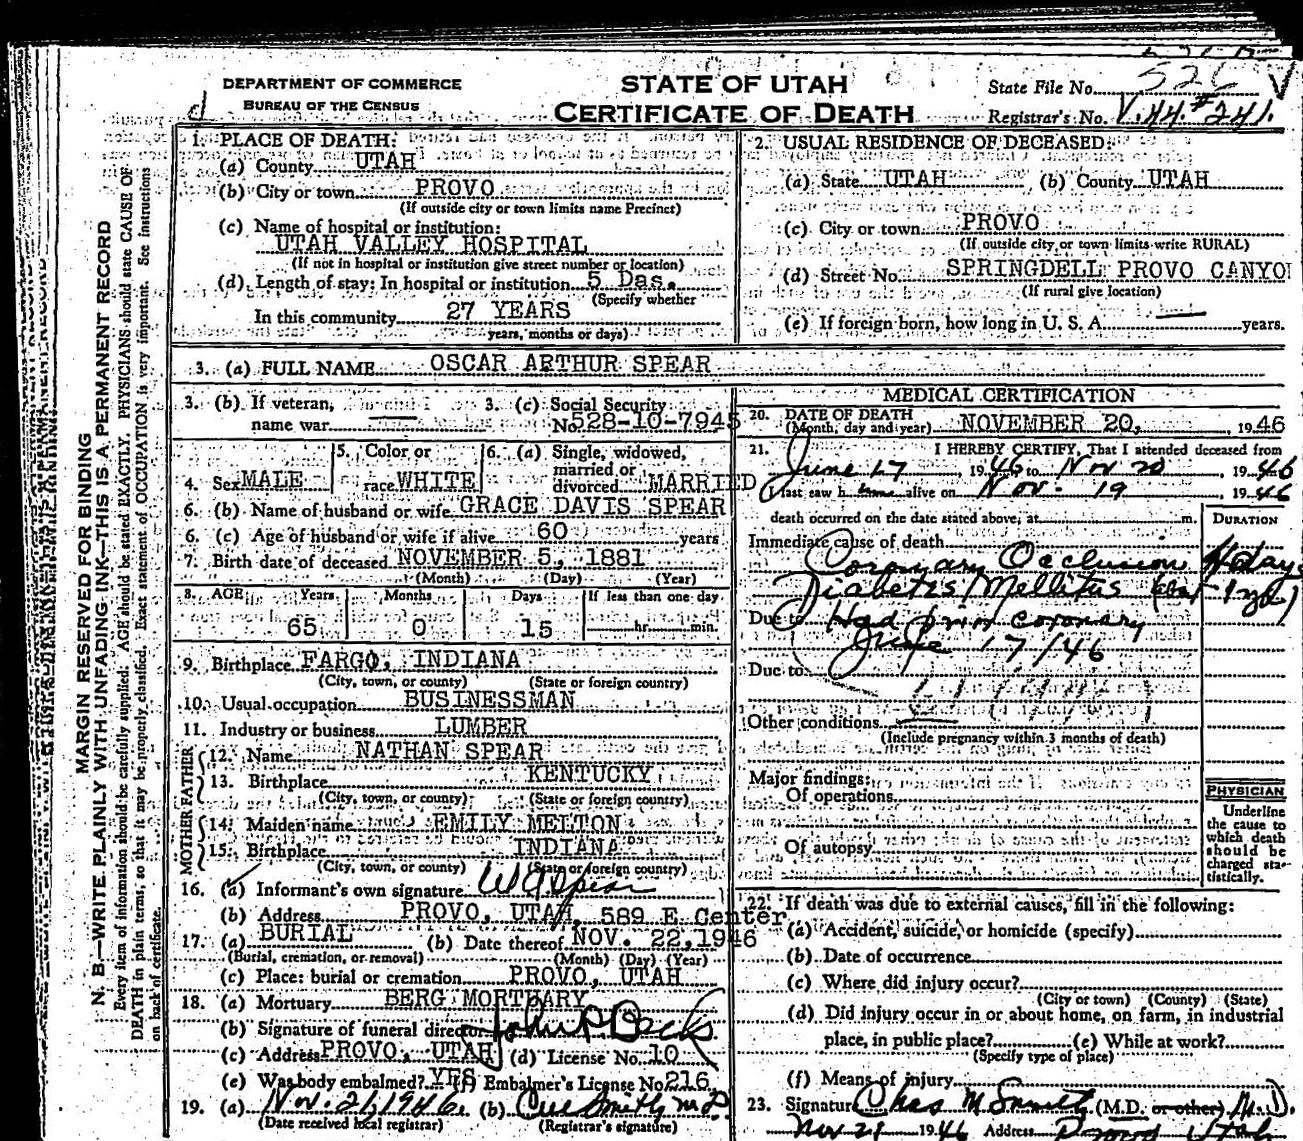 DEPARTMENT OF COMMERCE
BUREAU OF THE CENSUS
STATE OF UTAH
CERTIFICATE OF DEATH
State File No. 526
Registrar's No. V.44.#241.
MARGIN RESERVED FOR BINDING
N. B.—WRITE PLAINLY WITH UNFADING INK—THIS IS A PERMANENT RECORD
Every item of information should be carefully supplied. AGE should be stated EXACTLY. PHYSICIANS should state CAUSE OF
DEATH in plain terms, so that it may be properly classified. Exact statement of OCCUPATION is very important. See instructions
on back of certificate.
1. PLACE OF DEATH:
(a) County UTAH
(b) City or town PROVO
(If outside city or town limits name Precinct)
(c) Name of hospital or institution:
UTAH VALLEY HOSPITAL
(If not in hospital or institution give street number or location)
(d) Length of stay: In hospital or institution 5 Das.
(Specify whether
In this community 27 YEARS
years, months or days)
2. USUAL RESIDENCE OF DECEASED:
(a) State UTAH (b) County UTAH
(c) City or town PROVO
(If outside city or town limits write RURAL)
(d) Street No. SPRINGDELL PROVO CANYO
(If rural give location)
(e) If foreign born, how long in U. S. A. — years.
3. (a) FULL NAME OSCAR ARTHUR SPEAR
3. (b) If veteran, name war —
3. (c) Social Security No. 528-10-7945
4. Sex MALE
5. Color or race WHITE
6. (a) Single, widowed, married or divorced MARRIED
6. (b) Name of husband or wife GRACE DAVIS SPEAR
6. (c) Age of husband or wife if alive 60 years
7. Birth date of deceased NOVEMBER 5, 1881
(Month) (Day) (Year)
8. AGE Years Months Days If less than one day
65 0 15 hr. min.
9. Birthplace FARGO, INDIANA
(City, town, or county) (State or foreign country)
10. Usual occupation BUSINESSMAN
11. Industry or business LUMBER
FATHER
12. Name NATHAN SPEAR
13. Birthplace KENTUCKY
(City, town, or county) (State or foreign country)
MOTHER
14. Maiden name EMILY MELTON
15. Birthplace INDIANA
(City, town, or county) (State or foreign country)
16. (a) Informant's own signature W A Spear
(b) Address PROVO, UTAH, 589 E Center
17. (a) BURIAL (b) Date thereof NOV. 22, 1946
(Burial, cremation, or removal) (Month) (Day) (Year)
(c) Place: burial or cremation PROVO, UTAH
18. (a) Mortuary BERG MORTUARY
(b) Signature of funeral director John P Becks
(c) Address PROVO, UTAH (d) License No. 10
(e) Was body embalmed? YES (f) Embalmer's License No. 216
19. (a) Nov. 21, 1946. (b) Smith M D
(Date received local registrar) (Registrar's signature)
MEDICAL CERTIFICATION
20. DATE OF DEATH
(Month, day and year) NOVEMBER 20, 1946
21. I HEREBY CERTIFY, That I attended deceased from
June 17 1946 to Nov 20, 1946
I last saw him alive on Nov. 19, 1946
death occurred on the date stated above, at m.
DURATION
Immediate cause of death
Coronary Occlusion 4 days
Diabetes Mellitus
Due to Had prior coronary
June 17/46
Due to
Other conditions
(Include pregnancy within 3 months of death)
Major findings:
Of operations
Of autopsy
PHYSICIAN
Underline
the cause to
which death
should be
charged sta-
tistically.
22. If death was due to external causes, fill in the following:
(a) Accident, suicide, or homicide (specify)
(b) Date of occurrence
(c) Where did injury occur?
(City or town) (County) (State)
(d) Did injury occur in or about home, on farm, in industrial
place, in public place? (e) While at work?
(Specify type of place)
(f) Means of injury
23. Signature Chas M Smith (M.D. or other) M.D.
Nov 21 1946 Address Provo Utah